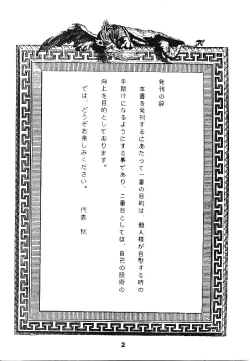 発刊の辞
本書を発刊するにあたって一番の目的は、他人様が自慰する時の
手助けになるようにする事であり、二番目としては、自己の技術の
向上を目的としております。
では、どうぞお楽しみください。
代表 欣
2